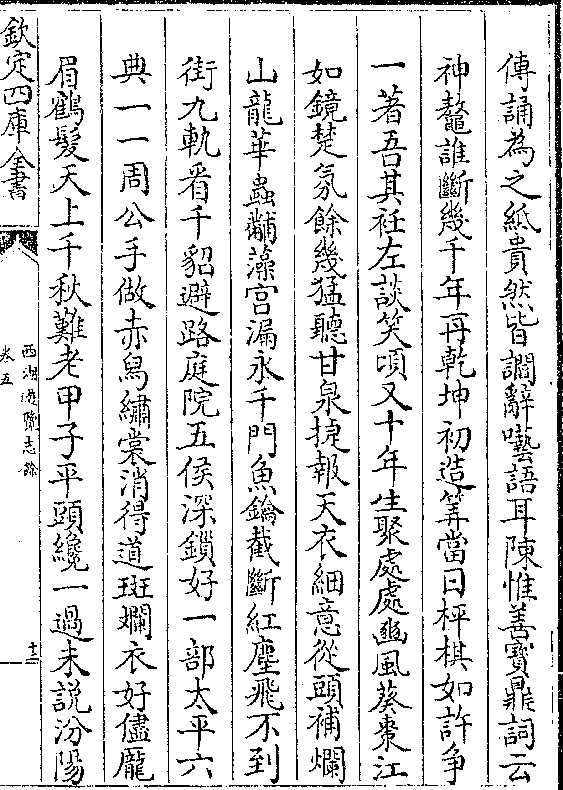 傳誦為之紙貴然皆讇辭囈語耳陳惟善寶鼎詞云
神鼇誰斷幾千年再乾坤初造算當日枰棋如許爭
一著吾其衽左談笑頃又十年生聚處處豳風葵棗江
如鏡楚氛餘幾猛聽甘泉捷報天衣細意從頭補爛
山龍華蟲黼藻宫漏永千門魚鑰截斷紅塵飛不到
街九軌看千貂避路庭院五侯深鎖好一部太平六
典一一周公手做赤舄繡裳消得道斑斕衣好儘龎
眉鶴髮天上千秋難老甲子平頭纔一過未説汾陽
欽定四庫全書
西湖遊覽志餘
卷五
十二